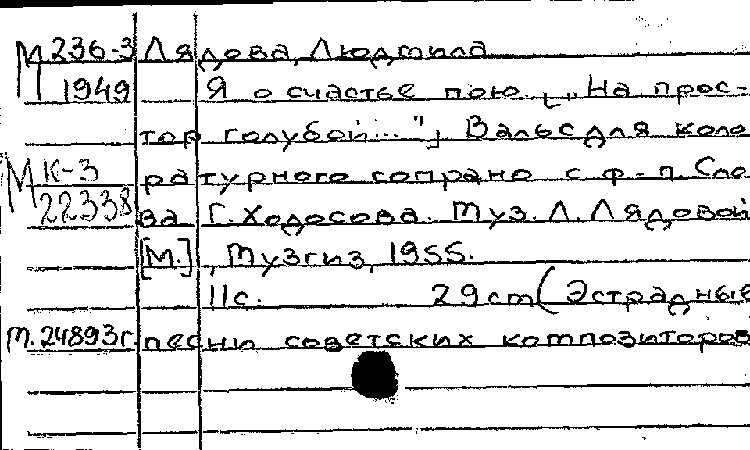 М 236-3 Лядова, Людмила
1949 Я о счастье пою. [„На прос-
тор голубой..."] Вальс для коло
М К-3 ратурного сопрано с ф-п. Сло
22338 ва Г. Ходосова. Муз. Л. Лядовой
[М.], Музгиз, 1955.
11с. 29 cm (Эстрадные
М. 24893г. песни советских композиторов